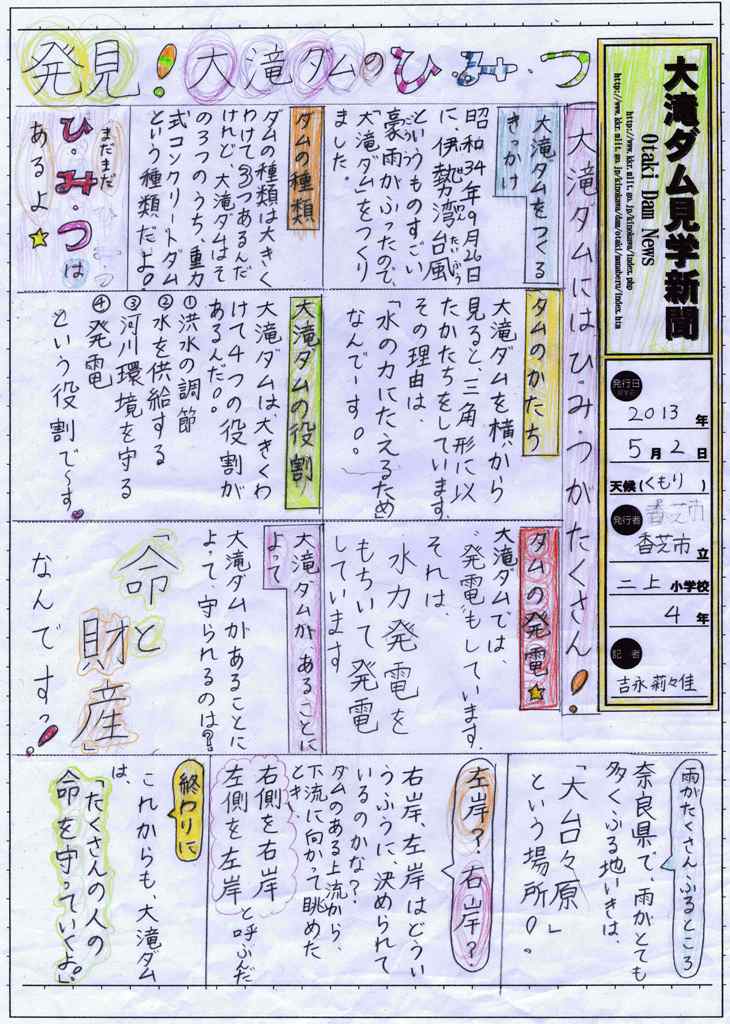 大滝ダム見学新聞
Otaki Dam News
http://www.kkr.mlit.go.jp/kinokawa/index.php
発行日
2013年
5月2日
天候(くもり)
発行者
香芝市
香芝市立
二上小学校
4年
記者
吉永莉々佳
発見!大滝ダムのひ・み・つ
大滝ダムにはひ・み・つがたくさん!
大滝ダムをつくる
きっかけ
昭和34年9月26日
に、伊勢湾台風
というものすごい
豪雨がふったので、
「大滝ダムをつくり
ました。
ダムの種類
ダムの種類は大きく
わけて3つあるんだ
けれど、大滝ダムはそ
の3つのうち、重力
式コンクリートダム
という種類だよ。
まだまだ
ひ・み・つは
あるよ☆
ダムのかたち
大滝ダムを横から
見ると、三角形に以
たかたちをしています。
その理由は、
「水の力にたえるため」
なんでーす。。
大滝ダムの役割
大滝ダムは、大きくわ
けて4つの役割が
あるんだ。。
①洪水の調節
②水を供給する
③河川環境を守る
④発電
という役割で〜す。
ダムの発電☆
大滝ダムでは、
"発電"もしています。
それは、
水力発電を
もちいて発電
しています
大滝ダムが、あることに
よって
大滝ダムがあることに
よって、守られるのは?
「命と
財産」
なんですっ!
雨がたくさんふるところ
奈良県で、雨がとても
多くふる地いきは、
「大台々原」
という場所。。
左岸?右岸?
右岸、左岸はどうい
うふうに、決められて
いるのかな?
ダムのある上流から、
下流に向かって眺めた
とき、
右側を右岸
左側を左岸と呼ぶんだ
終わりに
これからも、大滝ダム
は、
「たくさんの人の
命を守っていくよ。」